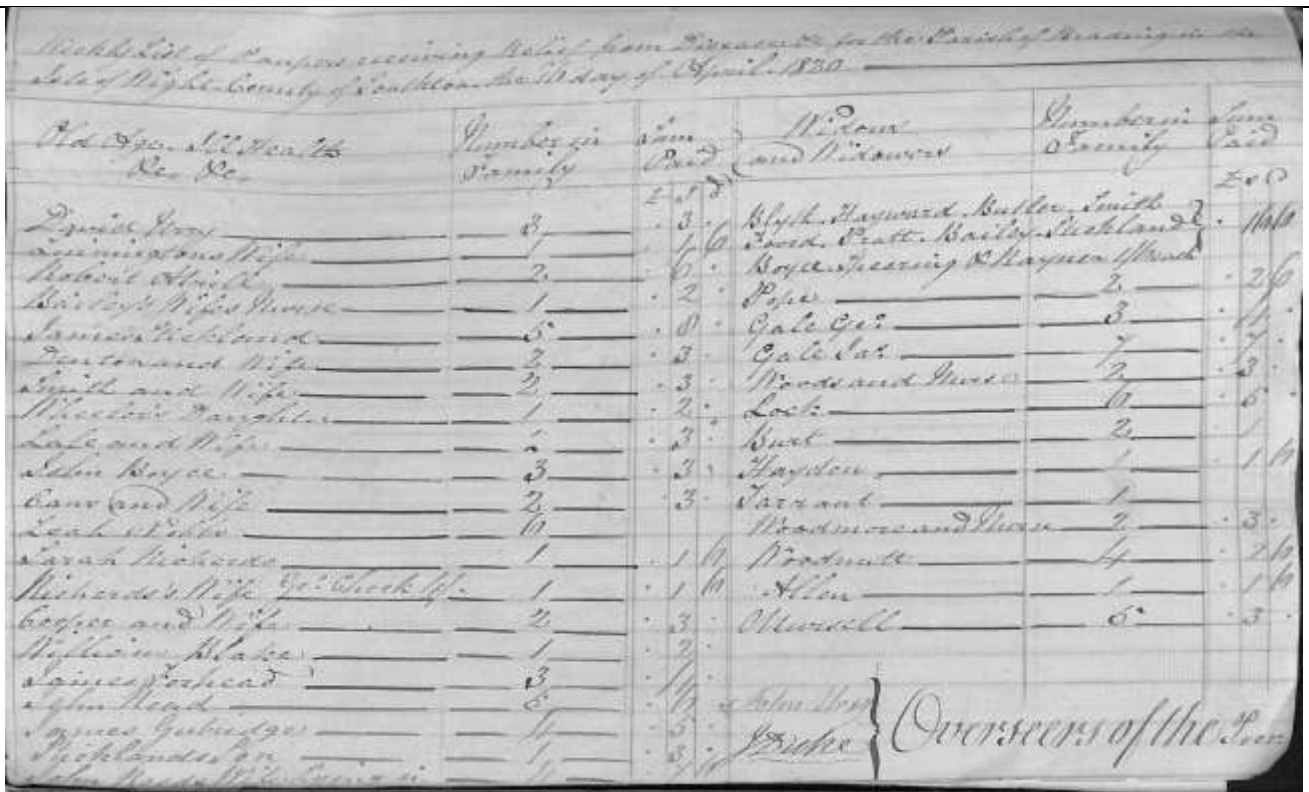 Weekly List of Paupers receiving Relief from Disease &c for the Parish of Brading in the
Isle of Wight County of Southton the 10 day of April 1830
Old Age Ill Health
&c. &c.
Number in
Family
Sum
Paid
£ S d
David 3 . 3 .
Wife 1 . 1 6
Robert 2 . 6 .
Bailey's Wifes Nurse 1 . 2 .
James Stickland 5 . 8 .
Denton and Wife 2 . 3 .
Smith and Wife 2 . 3 .
Wheeler's Daughter 1 . 2 .
and Wife 2 . 3 .
John Boyce 3 . 3 .
and Wife 2 . 3 .
Leah 6
Sarah Richards 1 . 1 6
Richards's Wife 1 . 1 6
Cooper and Wife 2 . 3 .
William Blake 1 . 2 .
James 3 . 4
John Read 5 . 6
James Gutridge 4 . 5 .
Sticklands Son 1 . 3 .
John Reeds Wife
Widows
and Widowers
Number in
Family
Sum
Paid
£ s D
Blyth. Hayward. Butler. Smith
Pratt. Bailey. Stickland
Boyce & Rayner 1/6 each . 16 6
Pope 2 . 2 6
Gale Geo. 3 . 1 .
Gale Jas. 7 . 7 .
Woods and Nurse 2 . 3 .
Lock 6 . 5 .
Burt 2 . 1
Haydon 1 . 1 6
Tarrant 1
Woodmore and Nurse 2 . 3 .
Woodnutt 4 . 2 6
Allen 1 . 1 6
Mursell 5 . 3 .
John
J Dicke
Overseers of the Poor